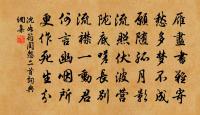 雁盡書難寄
愁多夢不成
願隨孤月影
流照伏波營
隴底嗟長別
流襟一慟君
何言幽咽所
更作死生分
沈如筠閨怨二首詞典
網集